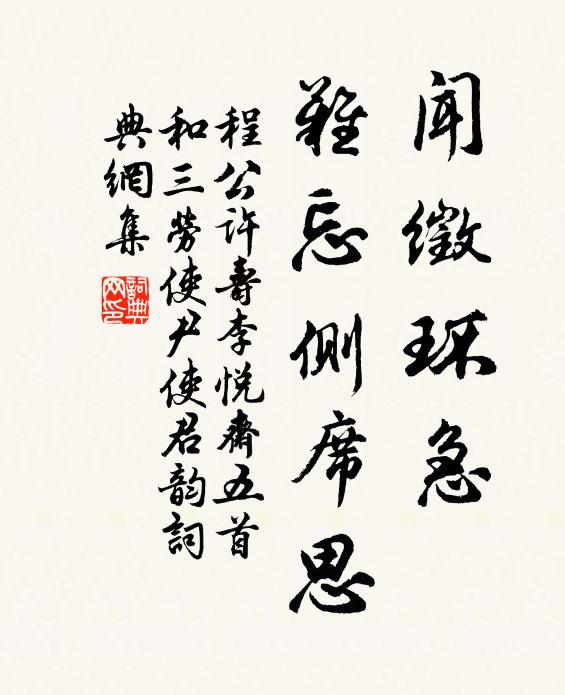 闻徵环急
难忘侧席思
程公许寿李悦斋五首
和三劳使尹使君韵词
典網集
詞典網印